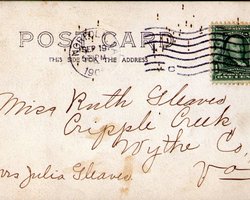 POST CARD
THIS SIDE FOR THE ADDRESS
SEP 19
190
Miss Ruth Gleaves
Cripple Creek
Wythe Co.
Va
Mrs Julia Gleaves